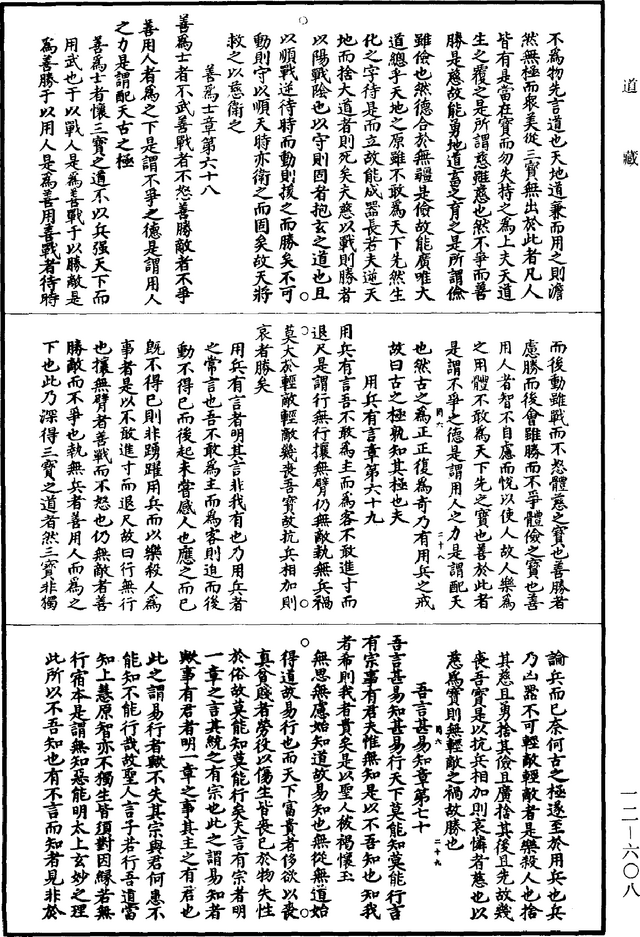 道藏
不為物先言道也天地道兼而用之則澹
然無極而眾美從三寶無出於此者凡人
皆有是當在寶而勿失持之為上夫天道
生之覆之是所謂慈雖慈也然不爭而善
勝是慈故能勇地道畜之育之是所謂儉
雖儉也然德合於無疆是儉故能廣唯大
道總乎天地之原雖不敢為天下先然生
化之宇待是而立故能成器長若夫逆天
地而捨大道者則死矣夫慈以戰則勝者
以陽戰陰也以守則固者抱玄之道也且
以順戰逆待時而動則援之而勝矣不可
動則守以順天時亦衛之而固矣故天將
救之以慈衛之
善為士章第六十八
善為士者不武善戰者不怒善勝敵者不爭
善用人者為之下是謂不爭之德是謂用人
之力是謂配天古之極
善為士者懷三寶之道不以兵强天下而
用武也于以戰人是為善戰于以勝敵是
為善勝于以用人是為善用善戰者待時
而後動雖戰而不怒體慈之寶也善勝者
慮勝而後會雖勝而不爭體儉之寶也善
用人者智不自慮而悅以使人故人樂為
之用體不敢為天下先之寶也善於此者
是謂不爭之德是謂用人之力是謂配天
也然古之為正正復為奇乃有用兵之戒
故曰古之極孰知其極也夫
用兵有言章第六十九
用兵有言吾不敢為主而為客不敢進寸而
退尺是謂行無行攘無臂仍無敵執無兵禍
莫大於輕敵輕敵幾喪吾寶故抗兵相加則
哀者勝矣
用兵有言者明其言非我有也乃用兵者
之常言也吾不敢為主而為客則迫而後
動不得已而後起來嘗感人也應之而已
旣不得已則非踴躍用兵而以樂殺人為
事者是以不敢進寸而退尺故曰行無行
也攘無臂者善戰而不怒也仍無敵者善
勝敵而不爭也執無兵者善用人而為之
下也此乃深得三寶之道者然三寶非獨
論兵而已奈何古之極遂至於用兵也兵
乃凶器不可輕敵輕敵者是樂殺人也捨
其慈且勇捨其儉且廣捨其後且先故幾
喪吾寶是以抗兵相加則哀憐者慈也以
慈為寶則無輕敵之禍故勝也
吾言甚易知章第七十
吾言甚易知甚易行天下莫能知莫能行言
有宗事有君夫惟無知是以不吾知也知我
者希則我者貴矣是以聖人被褐懷玉
無思無慮始知道故易知也無從無道始
得道故易行也而天下富貴者侈欲以喪
真貧賤者勞役以傷生皆喪已於物失性
於俗故莫能知莫能行矣夫言有宗者明
一章之言其統之有宗也此之謂易知者
歟事有君者明一章之事其主之有君也
此之謂易行者歟不失其宗與君何患不
能知不能行哉故聖人言予若行吾道當
知上慧原智亦不獨生皆須對因緣若無
行宿本是謂無知惡能明太上玄妙之理
此所以不吾知也有不言而知者見非於
一二—六〇八